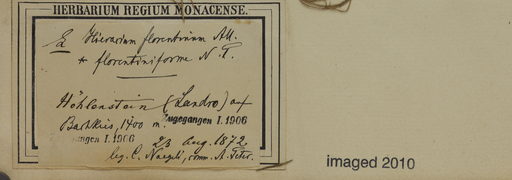 HERBARIUM REGIUM MONACENSE.
Hieracium florentinum All.
* florentiniforme N. P.
Höhlenstein (Landro) auf
Bachkies, 1400 m. Zugegangen I. 1906
gangen I. 1906 23 Aug. 1872
leg. C. Naegeli, comm. A. Peter.
imaged 2010